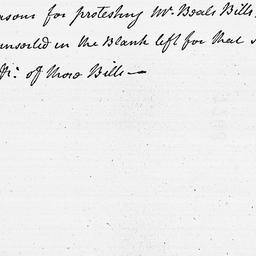 asons for protesting Mr. Beals Bills
inserted in the Blank left for that
of those Bills—